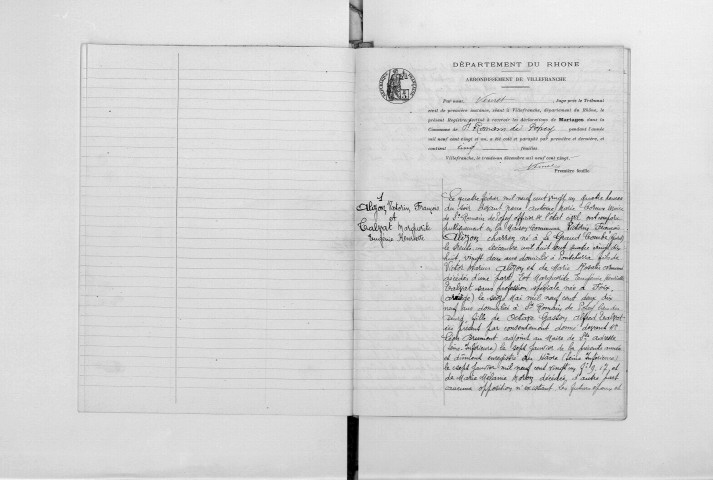 DÉPARTEMENT DU RHONE
ARRONDISSEMENT DE VILLEFRANCHE
Par nous, Juge près le Tribunal
civil de première instance, séant à Villefranche, département du Rhône, le
présent Registre destiné à recevoir les déclarations de Mariages dans la
Commune de St Romain de Popey pendant l'année
mil neuf cent vingt et un, a été coté et paraphé par première et dernière, et
contient cinq feuilles
Villefranche, le trentième décembre mil neuf cent vingt.
Première feuille
1
Alizon Victorin François
et
Chalzat Marguerite
Eugénie Henriette
Le quatre février mil neuf cent vingt un quatre heures
du soir devant nous Maire
de St Romain de Popey officier de l'état civil ont comparu
publiquement en la Maison Commune Victorin François
Alizon charron né à la Grand Combe (Gard)
le décembre mil huit cent quatre vingt dix
huit, vingt deux ans domicilié à Pontcharra fils de
Victor Alizon et de Marie Rosalie
décédés d'une part. Et Marguerite Eugénie Henriette
Chalzat sans profession spéciale née à Foix,
(Ariège) le sept Mai mil neuf cent deux dix
neuf ans domiciliée à St Romain de Popey
fille de Octave Gaston Alfred Chalzat
par consentement donné devant Mr
Léon adjoint au Maire de Ste adresse
(Seine Inférieure) le sept janvier de la présente année
et dûment enregistré au Havre (Seine Inférieure)
le sept janvier mil neuf cent vingt un et
de Marie Mélanie décédée, d'autre part
aucune opposition n'existant les futurs époux et